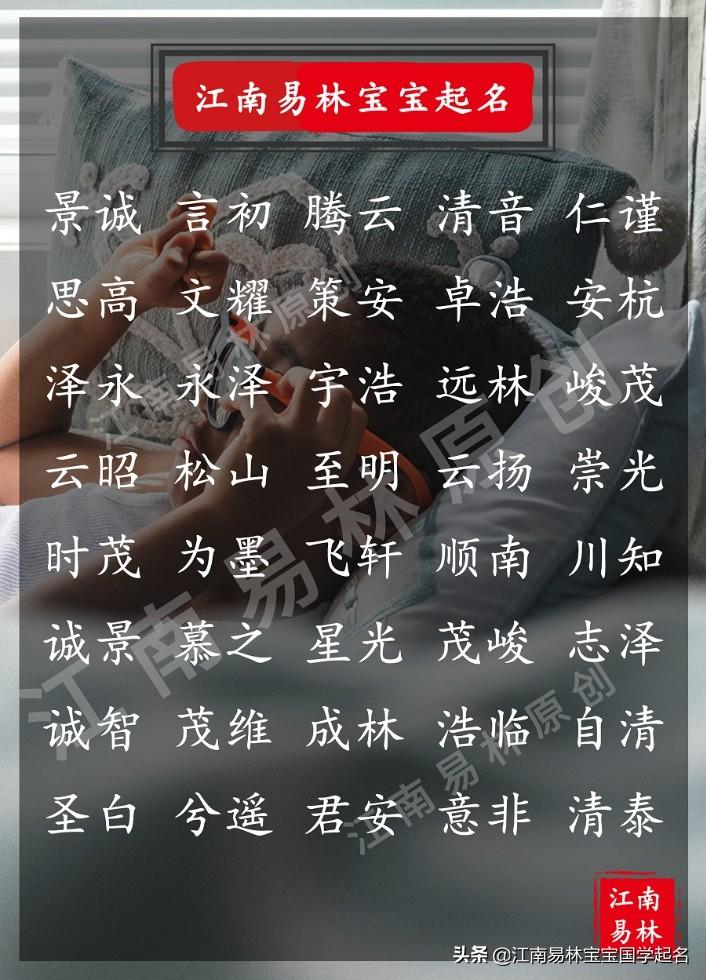 江南易林宝宝起名
景诚 言初 腾云 清音 仁谨
思高 文耀 策安 卓浩 安杭
泽永 永泽 宇浩 远林 峻茂
云昭 松山 至明 云扬 崇光
时茂 为墨 飞轩 顺南 川知
诚景 慕之 星光 茂峻 志泽
诚智 茂维 成林 浩临 自清
圣白 兮遥 君安 意非 清泰
江南易林原创
江南易林原创
江南易林原创
江南
易林
头条 @江南易林宝宝国学起名